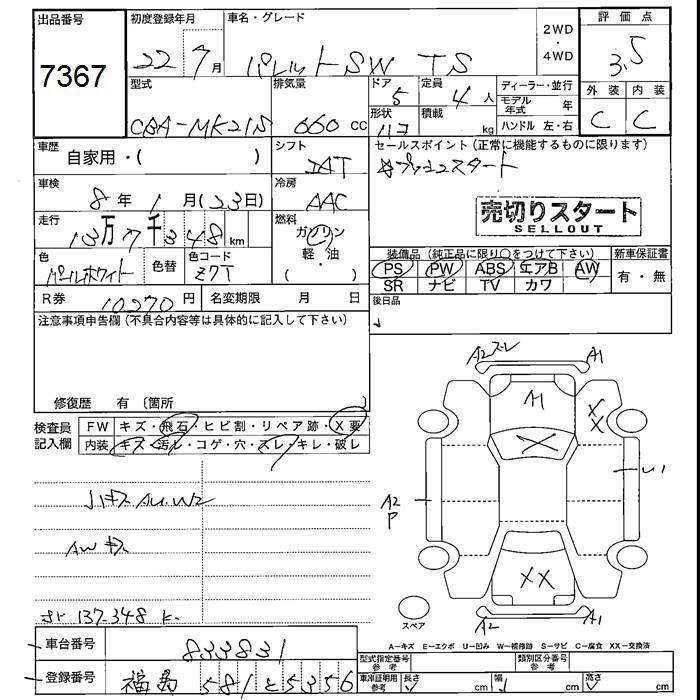 出品番号
7367
初度登録年月
22 7月
車名・グレード
パレットSW TS
2WD
・
4WD
評価点
3.5
型式
CBA-MK21S
排気量
660 cc
ドア
5
形状
定員
4人
積載
kg
ディーラー・並行
モデル年式 年
ハンドル 左・右
外装
C
内装
C
車歴
自家用・( )
シフト
AT
セールスポイント(正常に機能するものに限ります)
プッシュスタート
車検
8年1月(23日)
冷房
AAC
売切りスタート
SELLOUT
走行
13万7千348km
燃料
ガソリン
・
軽・油
( )
色
パールホワイト
色替
色コード
Z7T
装備品(純正品に限り○をつけて下さい)
PS PW ABS エアB AW
SR ナビ TV カワ
新車保証書
有・無
R券
10270円
名変期限 月 日
後日品
注意事項申告欄(不具合内容等は具体的に記入して下さい)
修復歴 有 〔箇所 〕
検査員記入欄
FW キズ・飛石・ヒビ割・リペア跡・X要
内装 キズ・汚レ・コゲ・穴・スレ・キレ・破レ
ハキズ AU.W2
AWキズ
137.348 k
A2スレ
A1
A1
X
X
X
A2
P
U1
XX
A2
A1
スペア
A-キズ E-エクボ U-凹み W-補修跡 S-サビ C-腐食 XX-交換済
車台番号
833831
登録番号
福島 581 と 5356
型式指定番号
参考
類別区分番号
参考
車庫証明用
参考
長さ cm
幅 cm
高さ cm